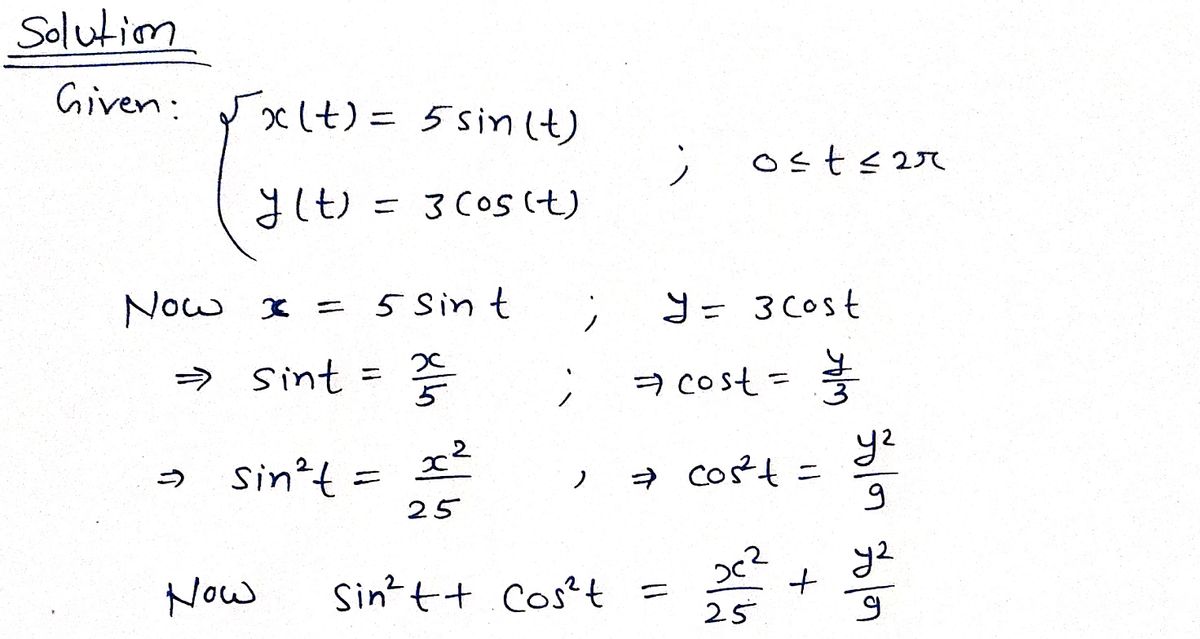 Solution
Given: { x(t) = 5 sin(t)
; 0 ≤ t ≤ 2π
y(t) = 3 cos(t)
Now x = 5 sin t ; y = 3 cost
⇒ sint = x/5 ; ⇒ cost = y/3
⇒ sin²t = x²/25 , ⇒ cos²t = y²/9
Now sin²t + cos²t = x²/25 + y²/9